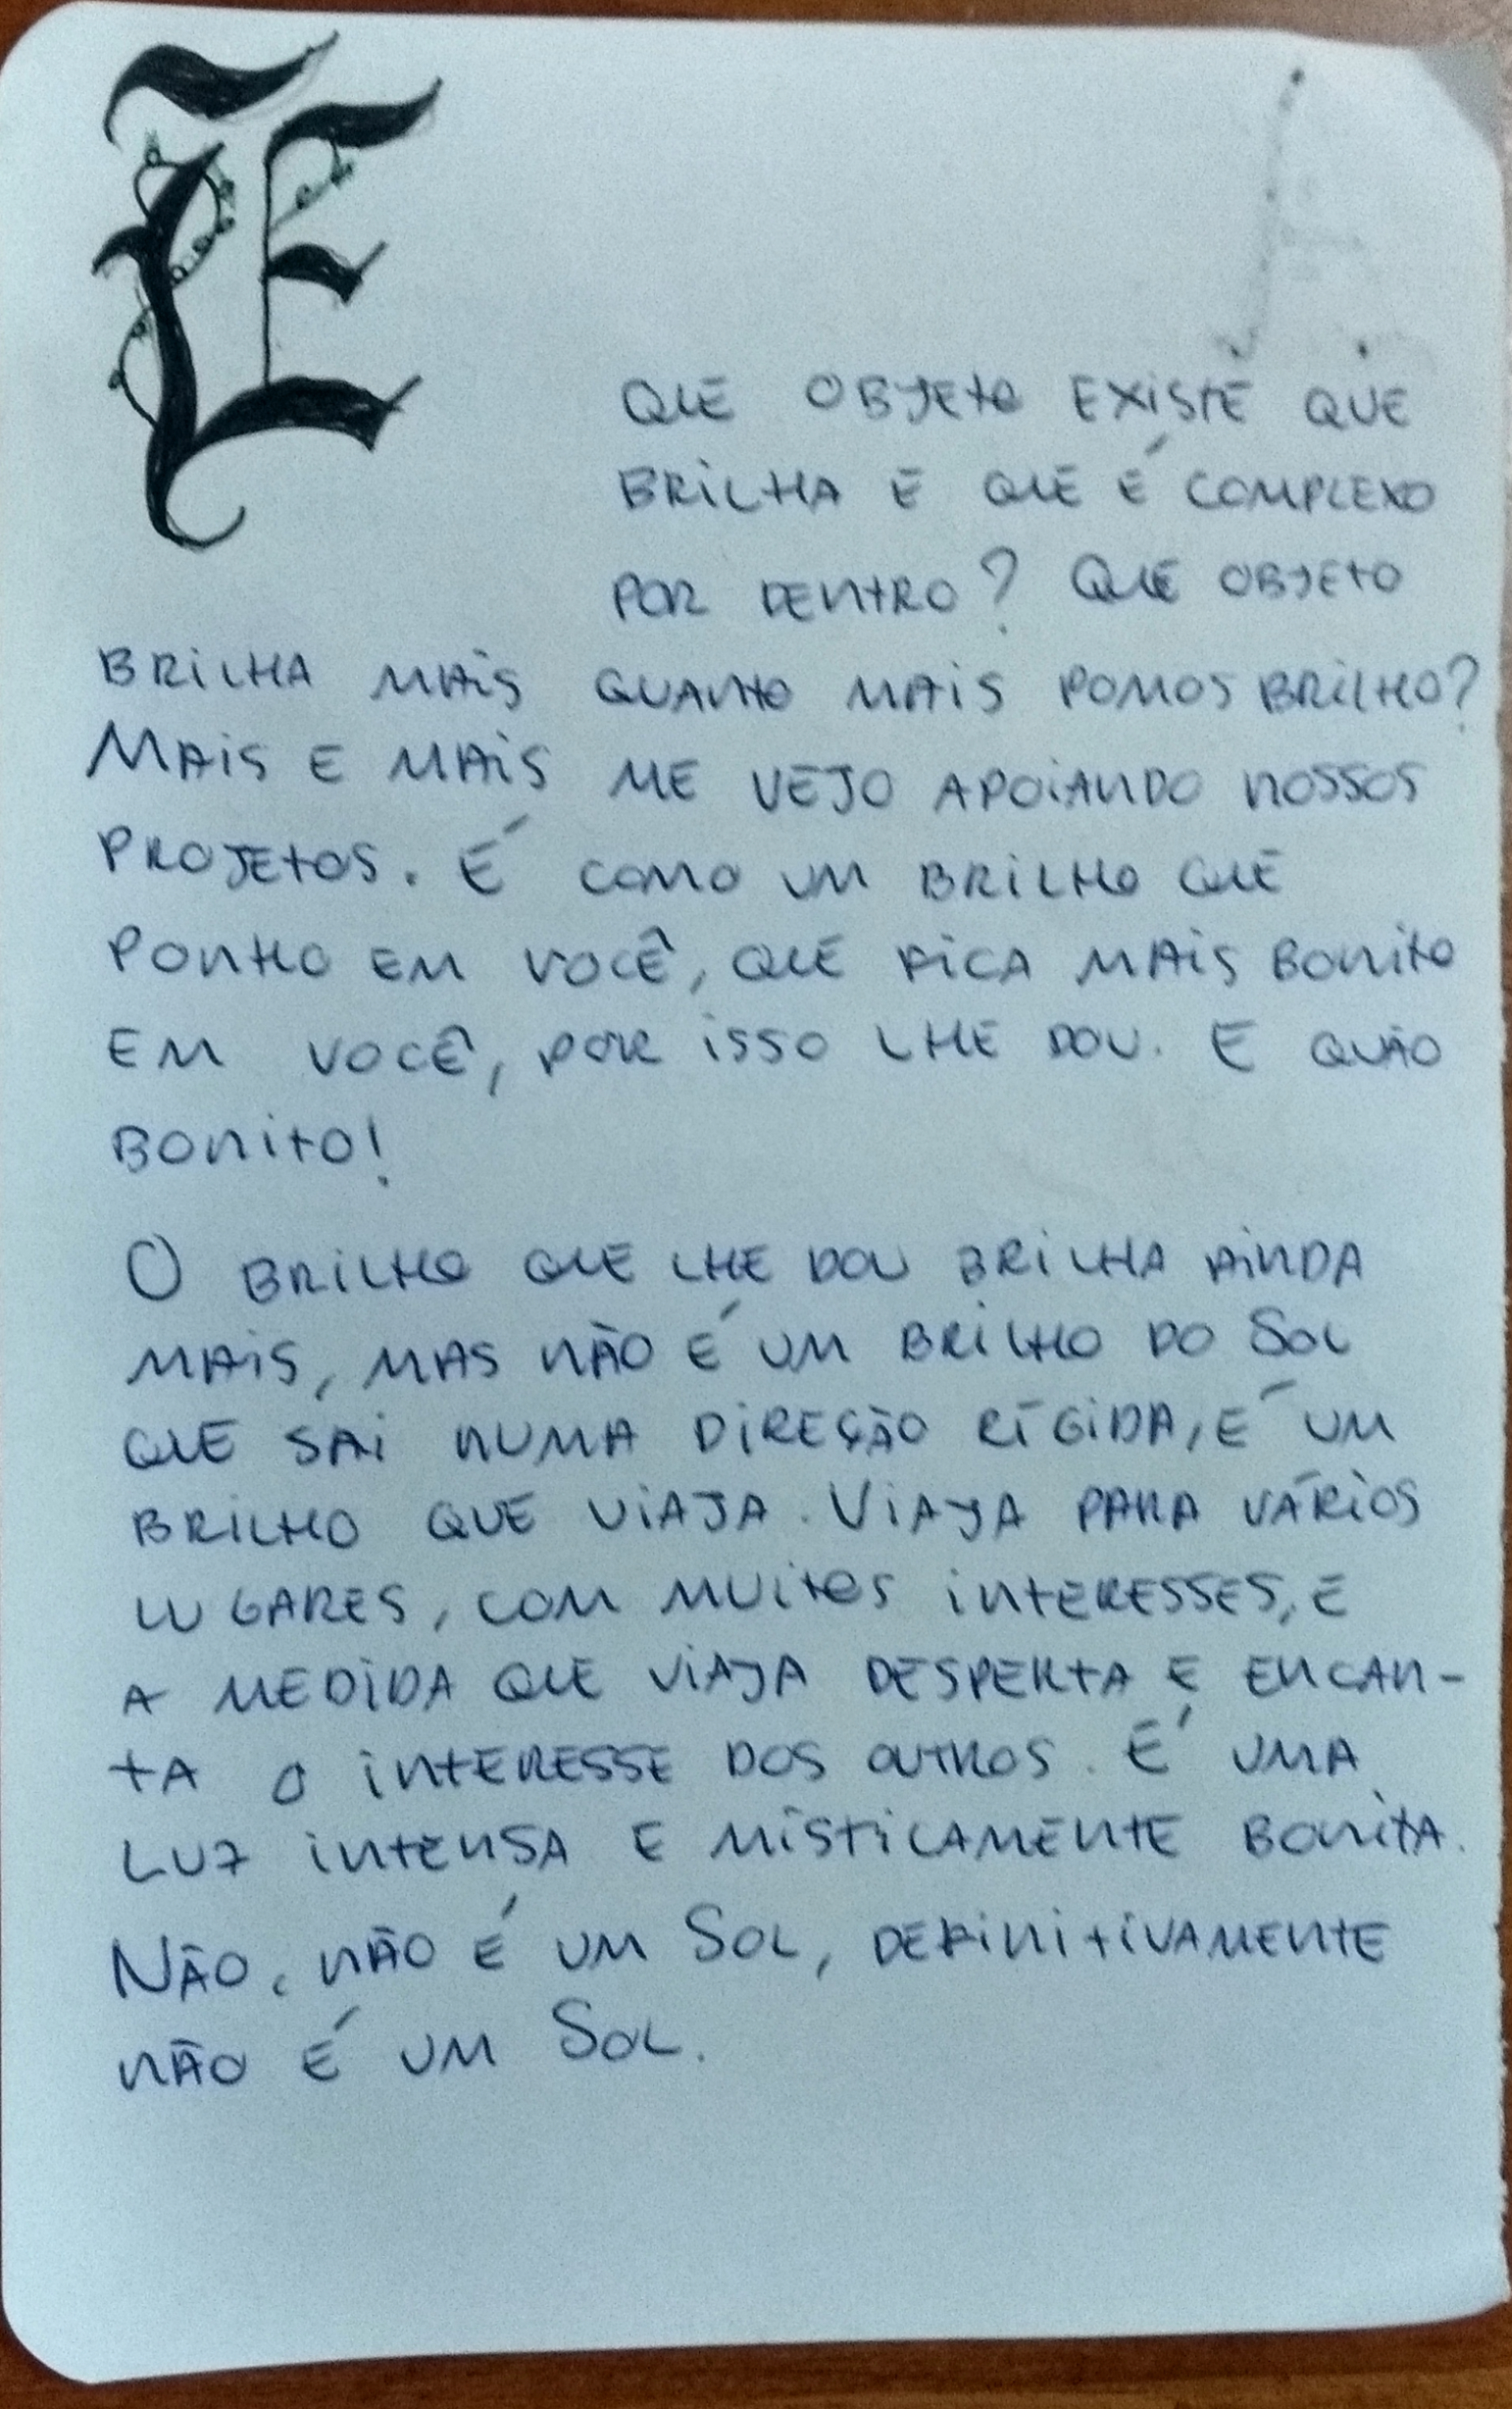 E
QUE OBJETO EXISTE QUE
BRILHA E QUE É COMPLEXO
POR DENTRO? QUE OBJETO
BRILHA MAIS QUANTO MAIS POMOS BRILHO?
MAIS E MAIS ME VEJO APOIANDO NOSSOS
PROJETOS. É COMO UM BRILHO QUE
PONHO EM VOCÊ, QUE FICA MAIS BONITO
EM VOCÊ, POR ISSO LHE DOU. E QUÃO
BONITO!
O BRILHO QUE LHE DOU BRILHA AINDA
MAIS, MAS NÃO É UM BRILHO DO SOL
QUE SAI NUMA DIREÇÃO RÍGIDA, É UM
BRILHO QUE VIAJA. VIAJA PARA VÁRIOS
LUGARES, COM MUITOS INTERESSES, E
A MEDIDA QUE VIAJA DESPERTA E ENCAN-
TA O INTERESSE DOS OUTROS. É UMA
LUZ INTENSA E MISTICAMENTE BONITA.
NÃO, NÃO É UM SOL, DEFINITIVAMENTE
NÃO É UM SOL.